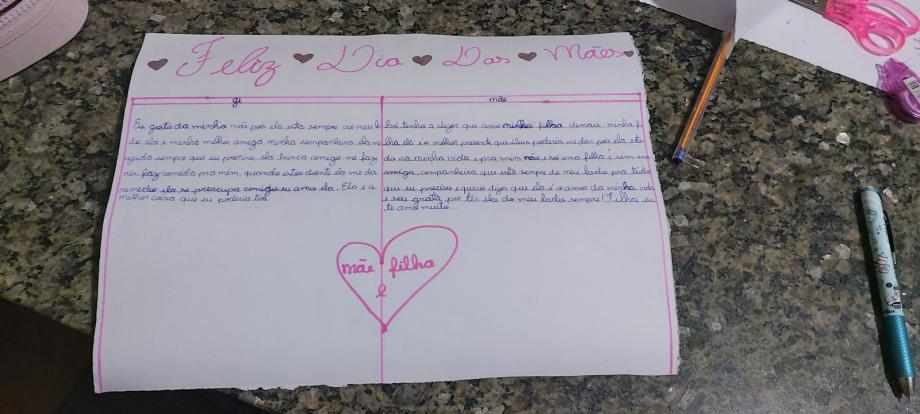 Feliz Dia Das Mães
gi
Eu gosto da minha mãe por ela esta sempre ao meu la
do, ela e minha melhor amiga, minha companheira, ela me
ajuda sempre que eu preciso, ela brinca comigo, me faz
rir, faz comida pra mim, quando estou doente ela me da
remedio ela se preocupa comigo eu amo ela. Ela e a
melhor coisa que eu poderia ter.
mãe
Só tenho a dizer que amo minha filha demais, minha fi
lha ela é o melhor presente que Deus poderia me dar por ela
da na minha vida e pra mim não é só uma filha é sim uma
amiga, companheira que está sempre do meu lado pra tudo
que eu preciso e quero dizer que ela é o amor da minha vida
e sou grata por ter ela do meu lado sempre! Filha eu
te amo muito...
mãe filha
e